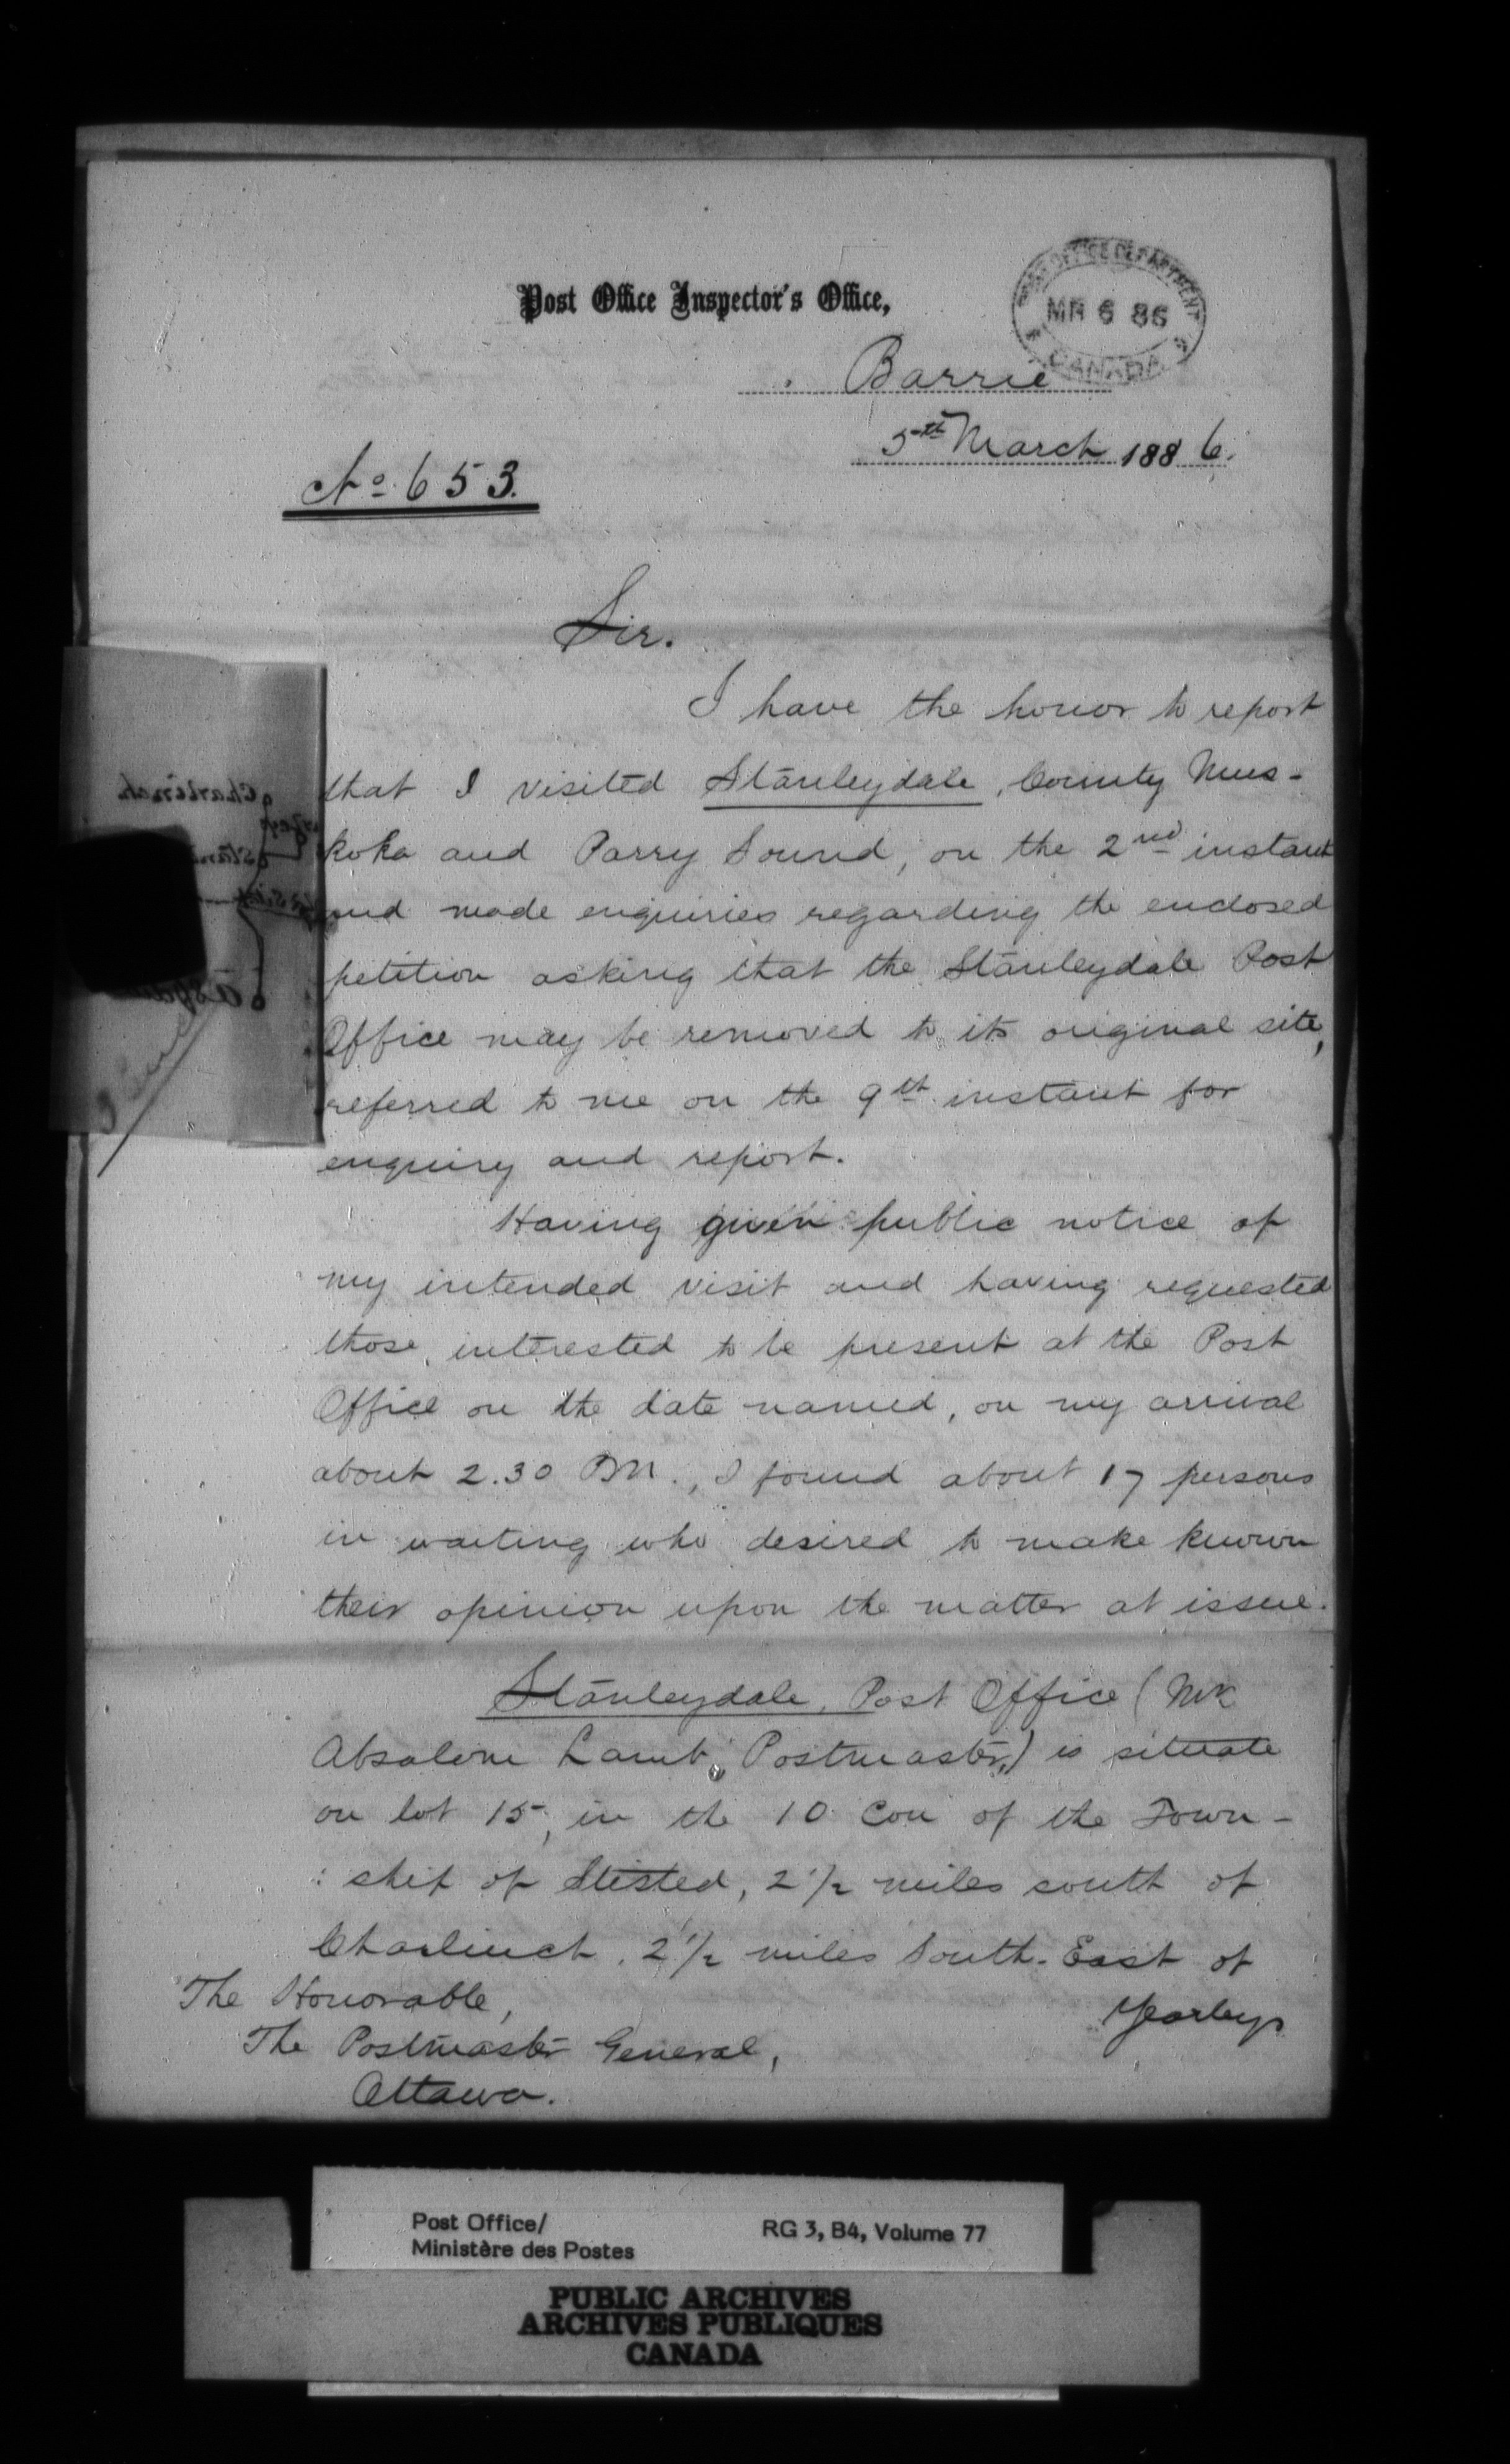 Post Office Inspector's Office,
POST OFFICE DEPARTMENT
MR 6 86
CANADA
Barrie
5th March 1886.
No. 653.
Sir.
I have the honor to report
that I visited Stanleydale, County Mus-
koka and Parry Sound, on the 2nd instant
and made enquiries regarding the enclosed
petition asking that the Stanleydale Post
Office may be removed to its original site,
referred to me on the 9th instant for
enquiry and report.
Having given public notice of
my intended visit and having requested
those interested to be present at the Post
Office on the date named, on my arrival
about 2.30 PM., I found about 17 persons
in waiting who desired to make known
their opinion upon the matter at issue.
Stanleydale, Post Office (Mr
Absalom Lamb, Postmaster,) is situate
on lot 15, in the 10 Con of the Town-
: ship of Stisted, 2 1/2 miles south of
Charlinch, 2 1/2 miles South-East of
Yearleys
The Honorable,
The Postmaster General,
Ottawa.
Post Office/
Ministère des Postes
RG 3, B4, Volume 77
PUBLIC ARCHIVES
ARCHIVES PUBLIQUES
CANADA